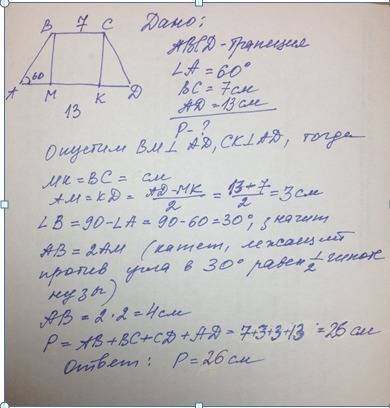 B 7 C
Дано:
ABCD-трапеция
∠A = 60°
BC = 7см
AD = 13см
P - ?
60
A M K D
13
Опустим BM⊥AD, CK⊥AD, тогда
MK = BC = см
AM = KD = AD-MK/2 = 13+7/2 = 3см
∠B = 90-∠A = 90-60 = 30°, значит
AB = 2AM (катет, лежащий
против угла в 30° равен 1/2 гипоте
нузы)
AB = 2·2 = 4см
P = AB+BC+CD+AD = 7+3+3+13 = 26см
Ответ: P = 26см